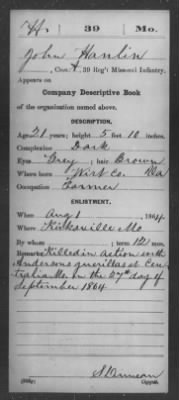 H. 39 Mo.
John Hanlin
, Co. H, 39 Reg't Missouri Infantry.
Appears on
Company Descriptive Book
of the organization named above.
DESCRIPTION.
Age 21 years; height 5 feet 10 inches.
Complexion Dark
Eyes Grey; hair Brown
Where born Wirt Co. Va
Occupation Farmer
ENLISTMENT.
When Aug 1, 1864.
Where Kirksville Mo
By whom ; term 12 mo.
Remarks: Killed in action with
Andersons guerillas at Cen-
tralia Mo. on the 27th day of
September 1864
S Duncan
Copyist.